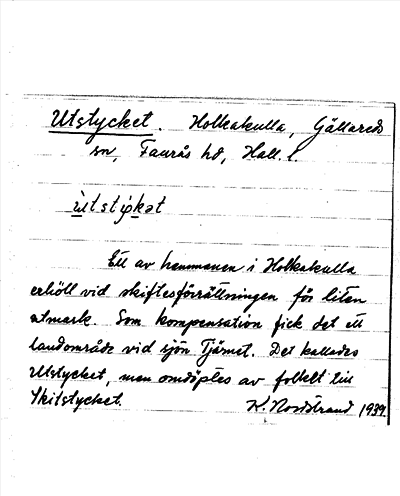 Utstycket. Holkakulla, Gällareds
sn, Faurås hd, Hall. l.
ùtstykət
Ett av hemmanen i Holkakulla
erhöll vid skiftesförrättningen för liten
utmark. Som kompensation fick det ett
landområde vid sjön Tjärnet. Det kallades
Utstycket, men omdöptes av folket till
Skitstycket. K. Nordstrand 1939.